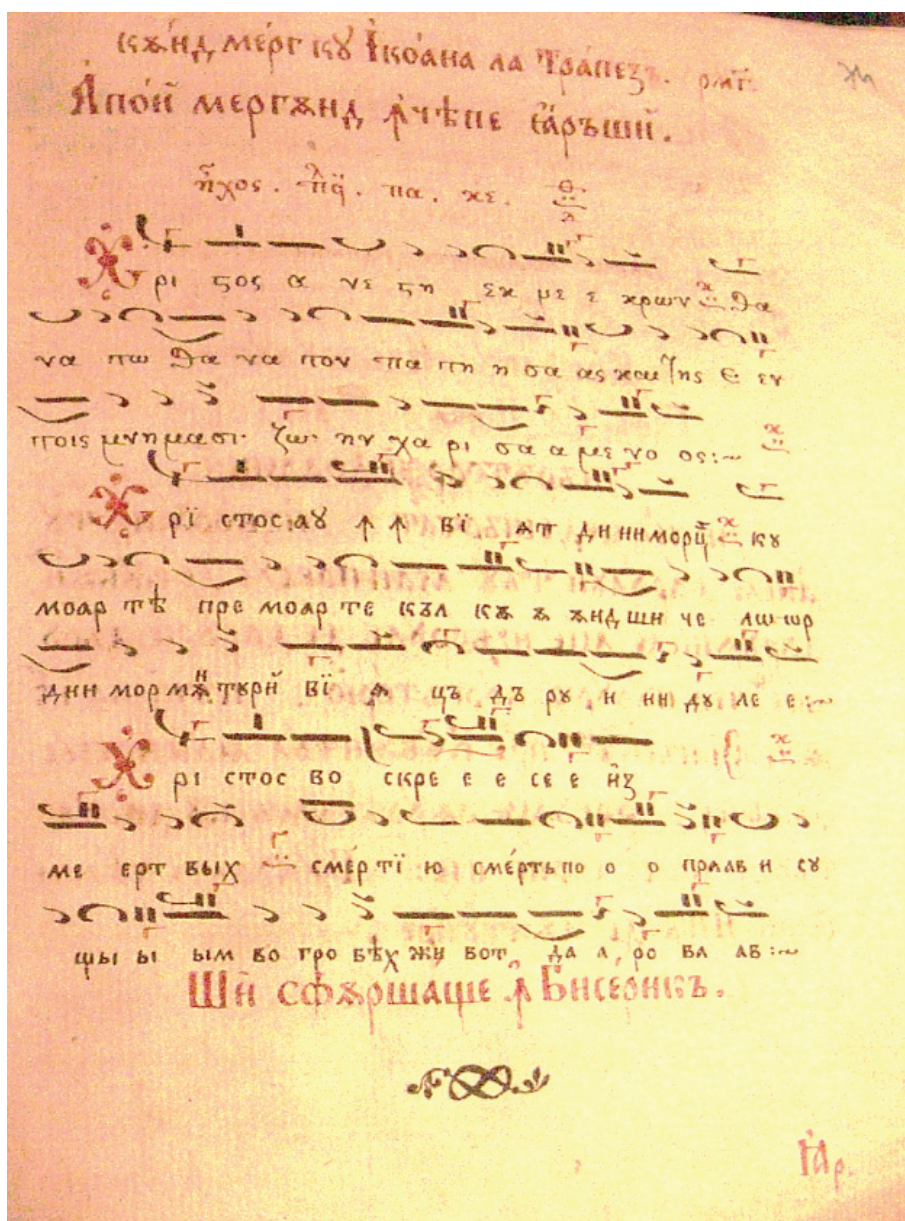 кѫнд мерг кꙋ Їкоана ла Трапезъ. рмг.
Апой мергѫнд ꙟчѣпе Їаръший.
ἦχος . πλ̃ . πα . κε .
Χρι ϛος α νε ϛη εκ με ε κρων θα
να τω θα να τον πα τη η σα ας και της ε εν
τοις μνημασι · ζω ην χα ρι σα α με νο ος :~
Хрї стос аꙋ ꙟ ꙟ вї ѧт дин морцй кꙋ
моар тѣ пре моар те къл кѫ ѫ ѫнд ши че лѡ ѡр
дин мор мѫнтꙋрй вї ꙗ цъ дъ рꙋ и ин дꙋ ле е :~
Хрї стос во скре е е се е из
ме ерт вых смертї ю смерть по о о прав и сꙋ
щы ы ым во гро бѣх жи вот да а ро ва ав :~
Ший сфѫршаще ꙟ Бисерикъ.